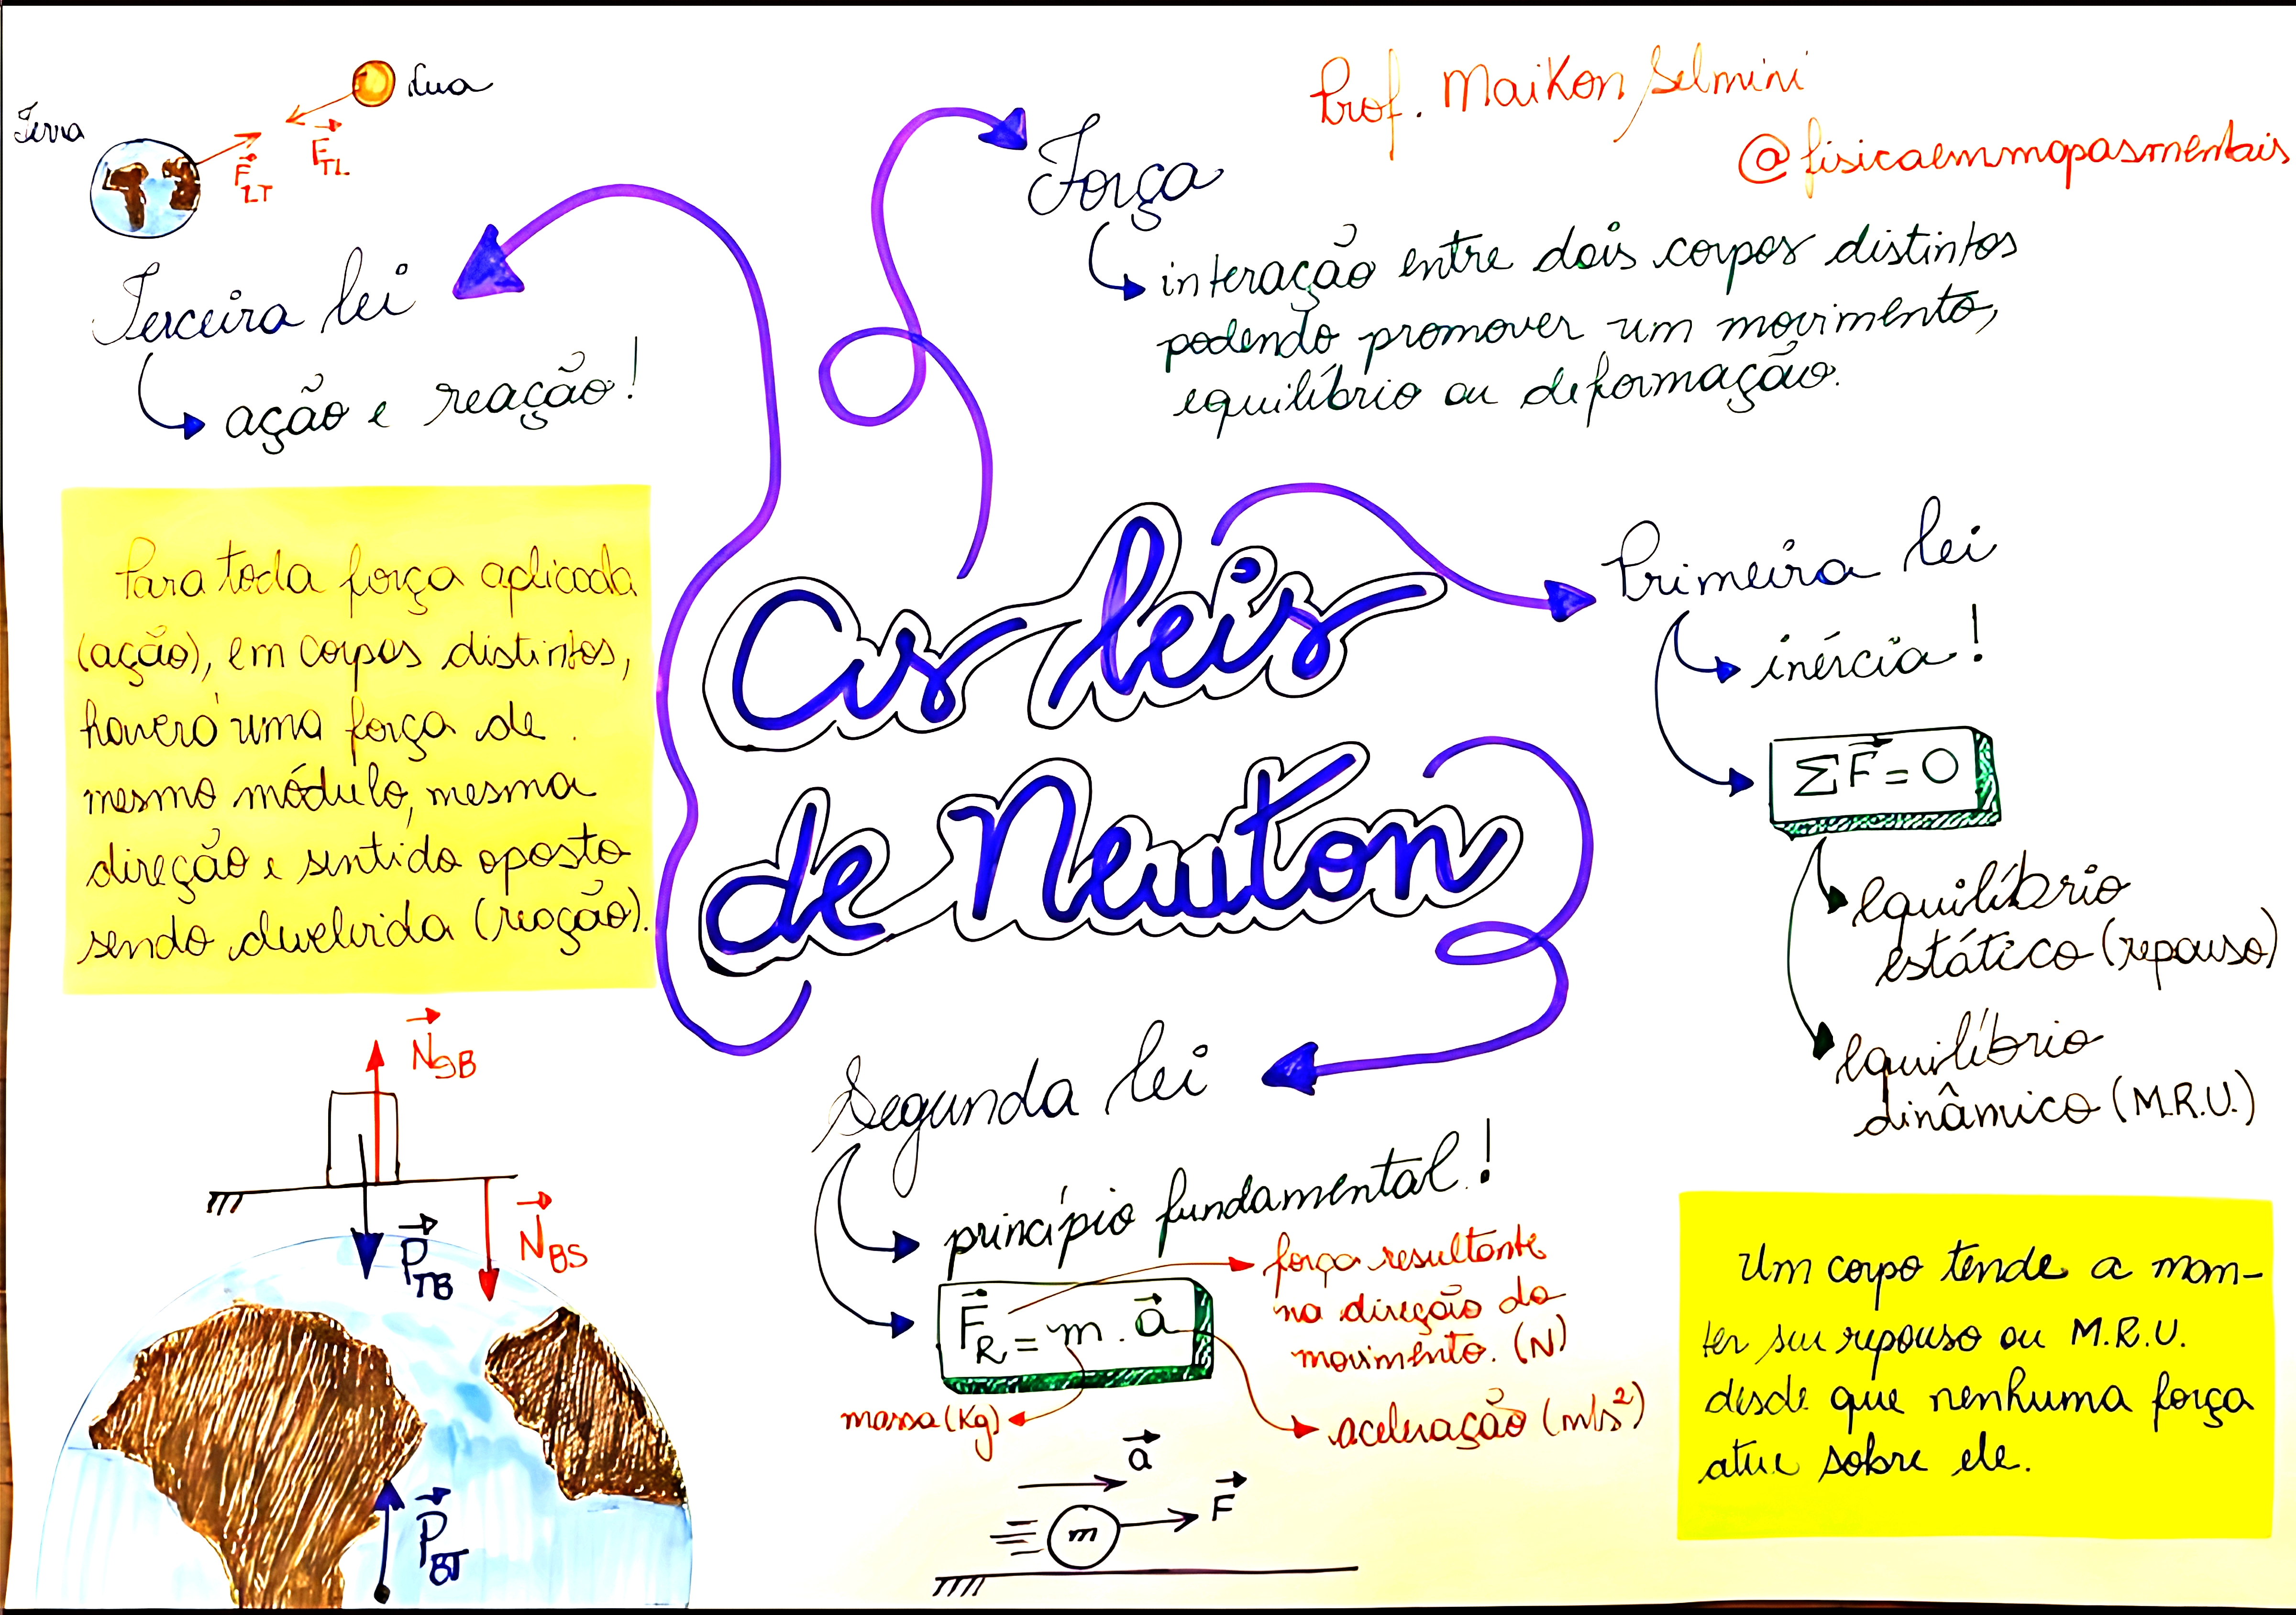 Prof. Maikon Selmini
@fisicaemmapasmentais
As leis
de Newton
Força
interação entre dois corpos distintos
podendo promover um movimento,
equilíbrio ou deformação.
Primeira lei
inércia!
ΣF⃗ = 0
Equilíbrio
estático (repouso)
Equilíbrio
dinâmico (M.R.U.)
Um corpo tende a man-
ter seu repouso ou M.R.U.
desde que nenhuma força
atue sobre ele.
Segunda lei
princípio fundamental!
F⃗R = m . a⃗
força resultante
na direção do
movimento. (N)
massa (Kg)
aceleração (m/s²)
a⃗
F⃗
m
Terceira lei
ação e reação!
Terra
Lua
F⃗LT
F⃗TL
Para toda força aplicada
(ação), em corpos distintos,
haverá uma força de
mesmo módulo, mesma
direção e sentido oposto
sendo devolvida (reação).
N⃗SB
P⃗TB
N⃗BS
P⃗BT